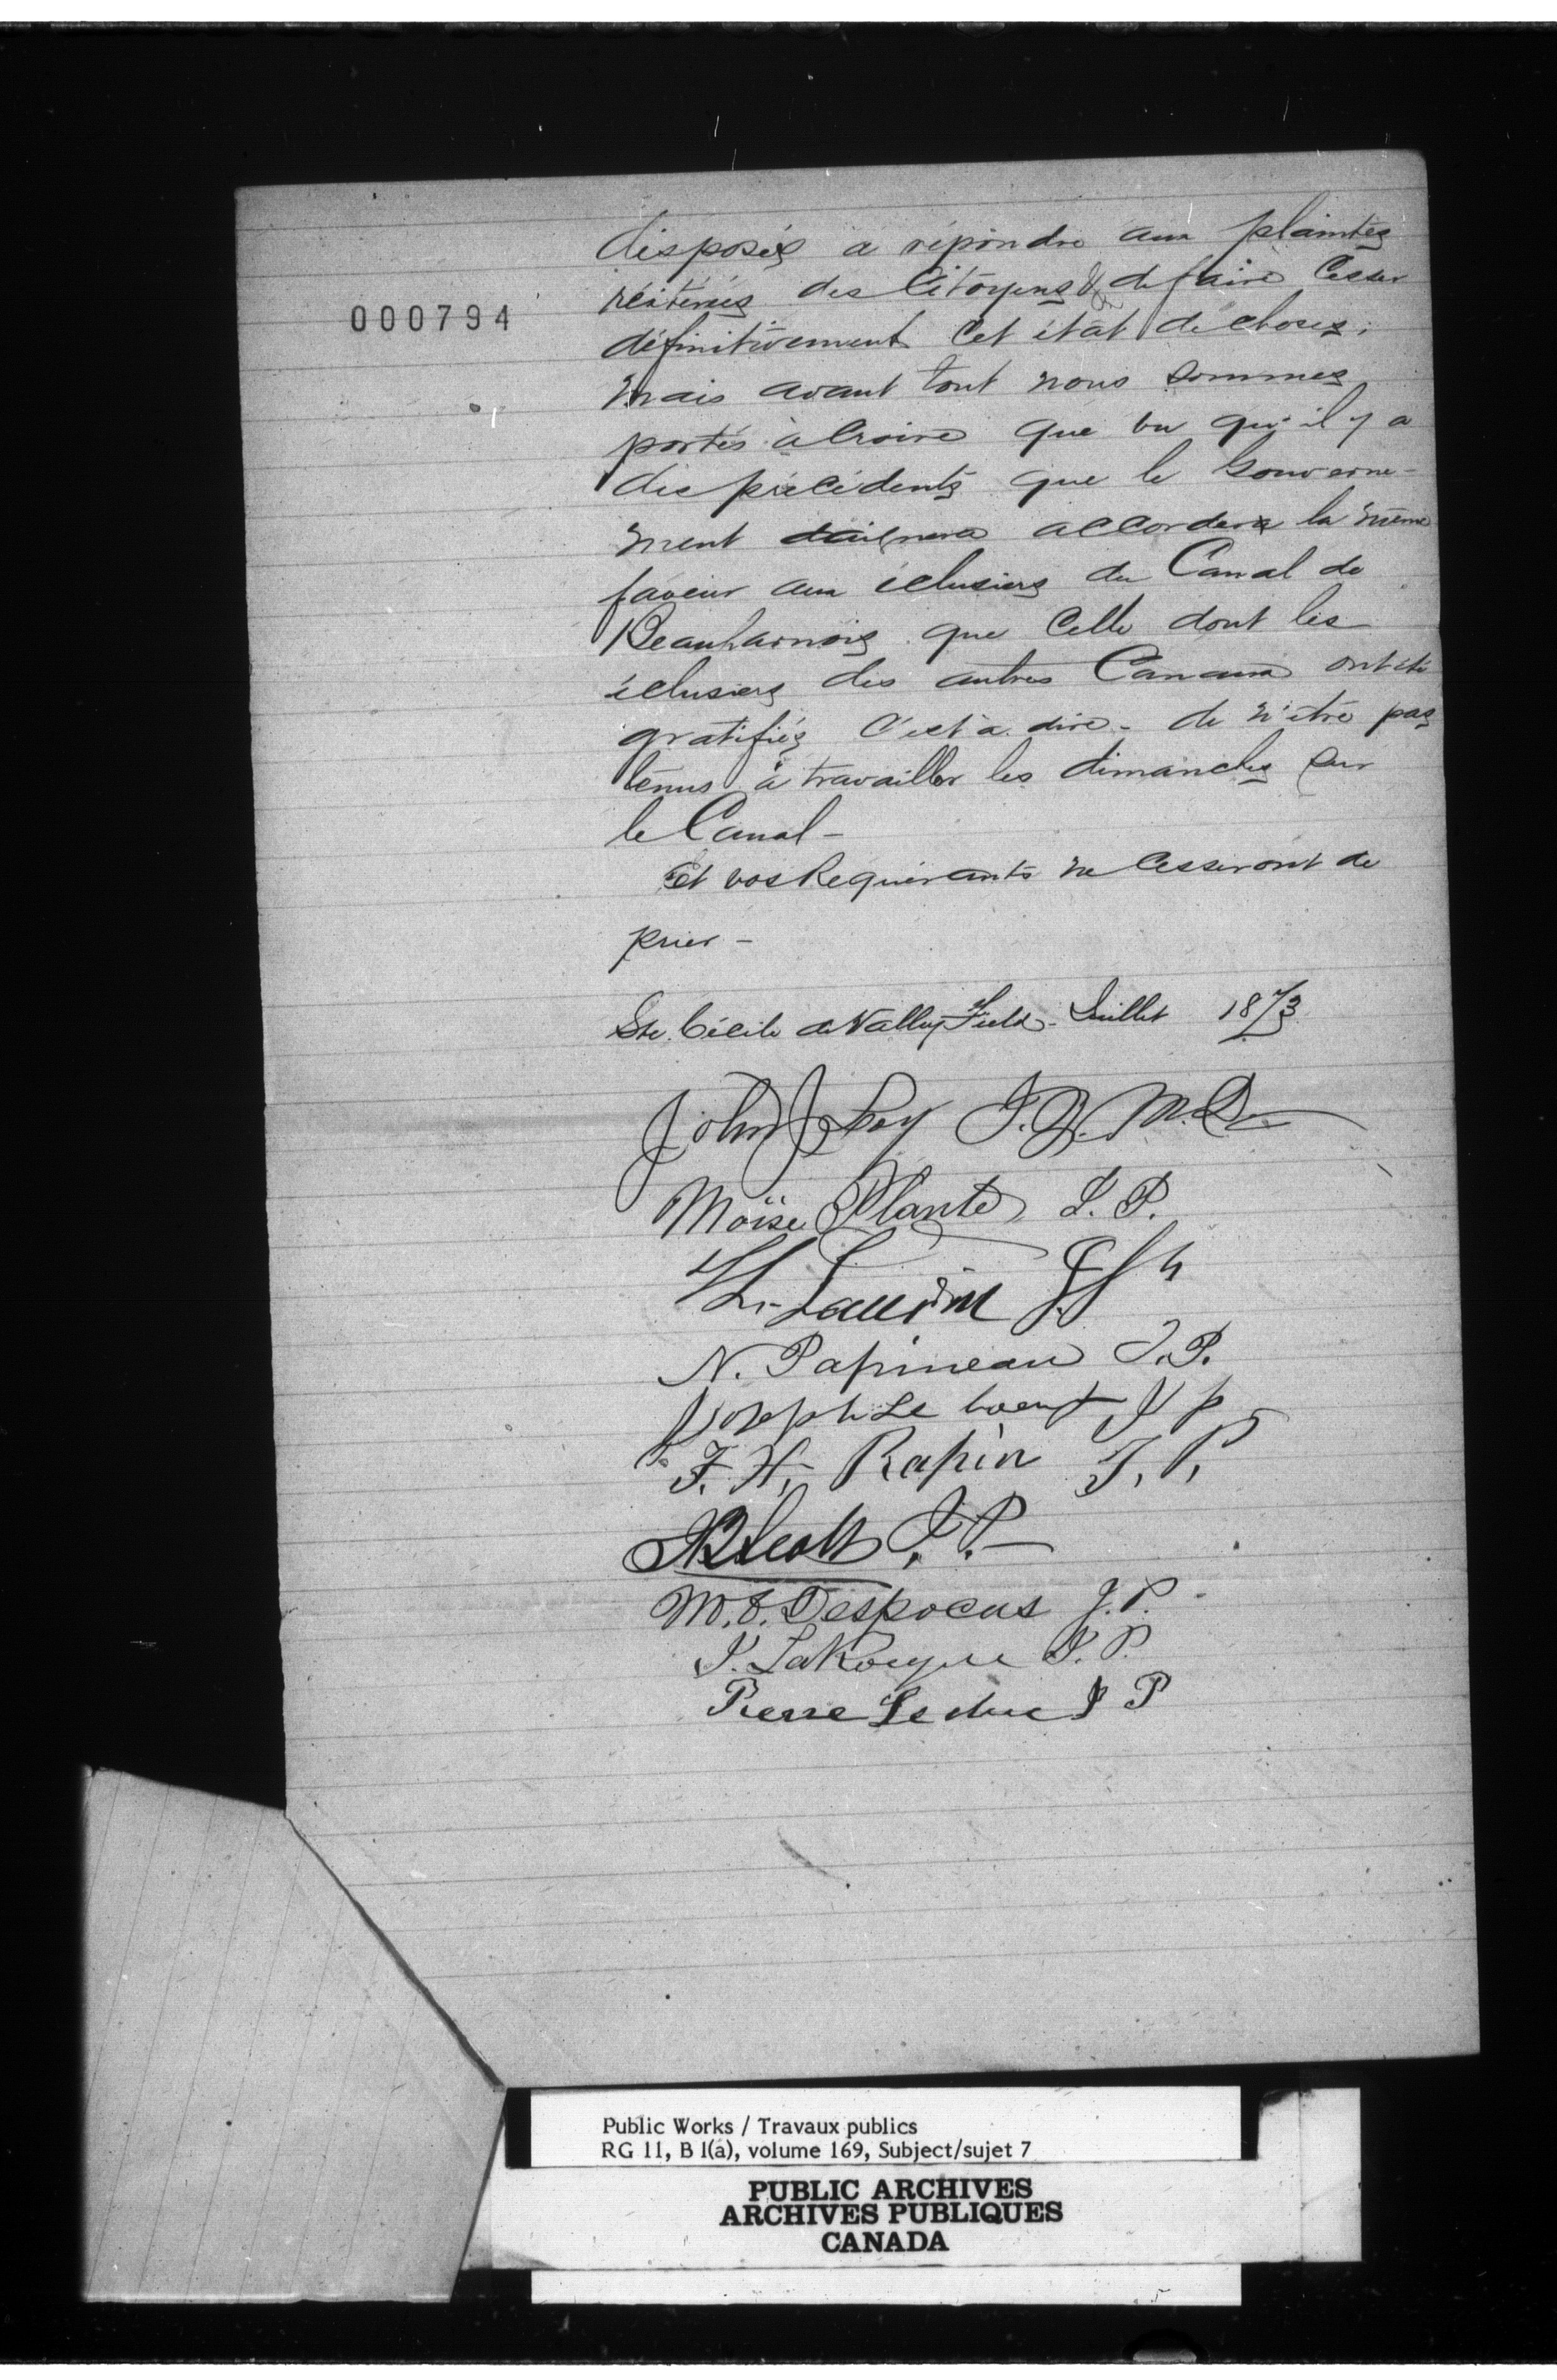 000794
disposés a répondre aux plaintes
réitérées des Citoyens & de faire Cesser
définitivement Cet état de choses;
mais avant tout nous sommes
portés à Croire que vu qu'il y a
des précédents que le Gouverne-
ment daignera accorder la même
faveur aux éclusiers du Canal de
Beauharnois que Celle dont les
éclusiers des autres Canaux ont été
gratifiés C'est a dire - de n'être pas
tenus à travailler les dimanches sur
le Canal -
Et vos Requérants ne Cesseront de
prier -
Ste. Cécile de Valleyfield - Juillet 1873
John J. M.D.
Moïse Plante J. P.
N. Papineau J.P.
Joseph Le boeuf J p
F. H. Rapin J. P.
Scott J. P. -
M. Despocas J. P.
J. LaRocque J. P.
Pierre Leduc J P
Public Works / Travaux publics
RG 11, B 1(a), volume 169, Subject/sujet 7
PUBLIC ARCHIVES
ARCHIVES PUBLIQUES
CANADA